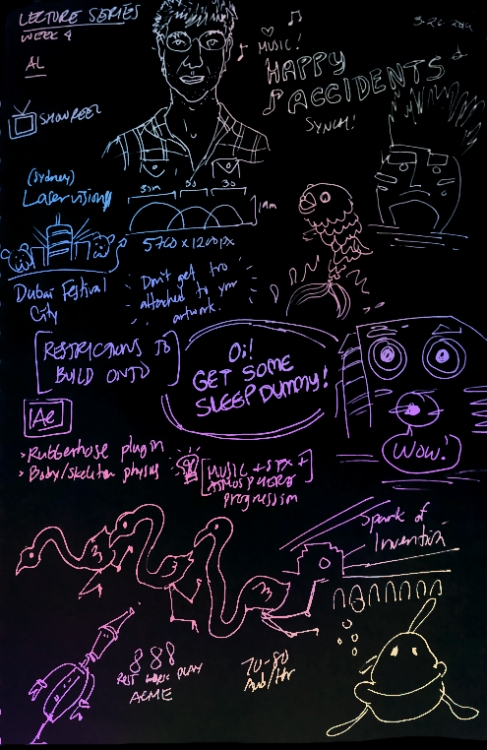 LECTURE SERIES
WEEK 4
AL
MUSIC!
HAPPY
ACCIDENTS
SYNCH!
SHOWREEL
(Sydney)
Laservision
35m
5s
35
5760 x 1200px
Dubai Festival
City
Don't get too
attached to your
artwork.
[RESTRICTIONS TO
BUILD ONTO]
Oi!
GET SOME
SLEEP DUMMY!
Ae
> Rubberhose plugin
> Body/skeleton physics
[MUSIC + SFX +
ATMOSPHERE]
progression
WOW!
Spark of
Invention
888
REST WORK PLAY
ACME
70-80
AUD/Hr